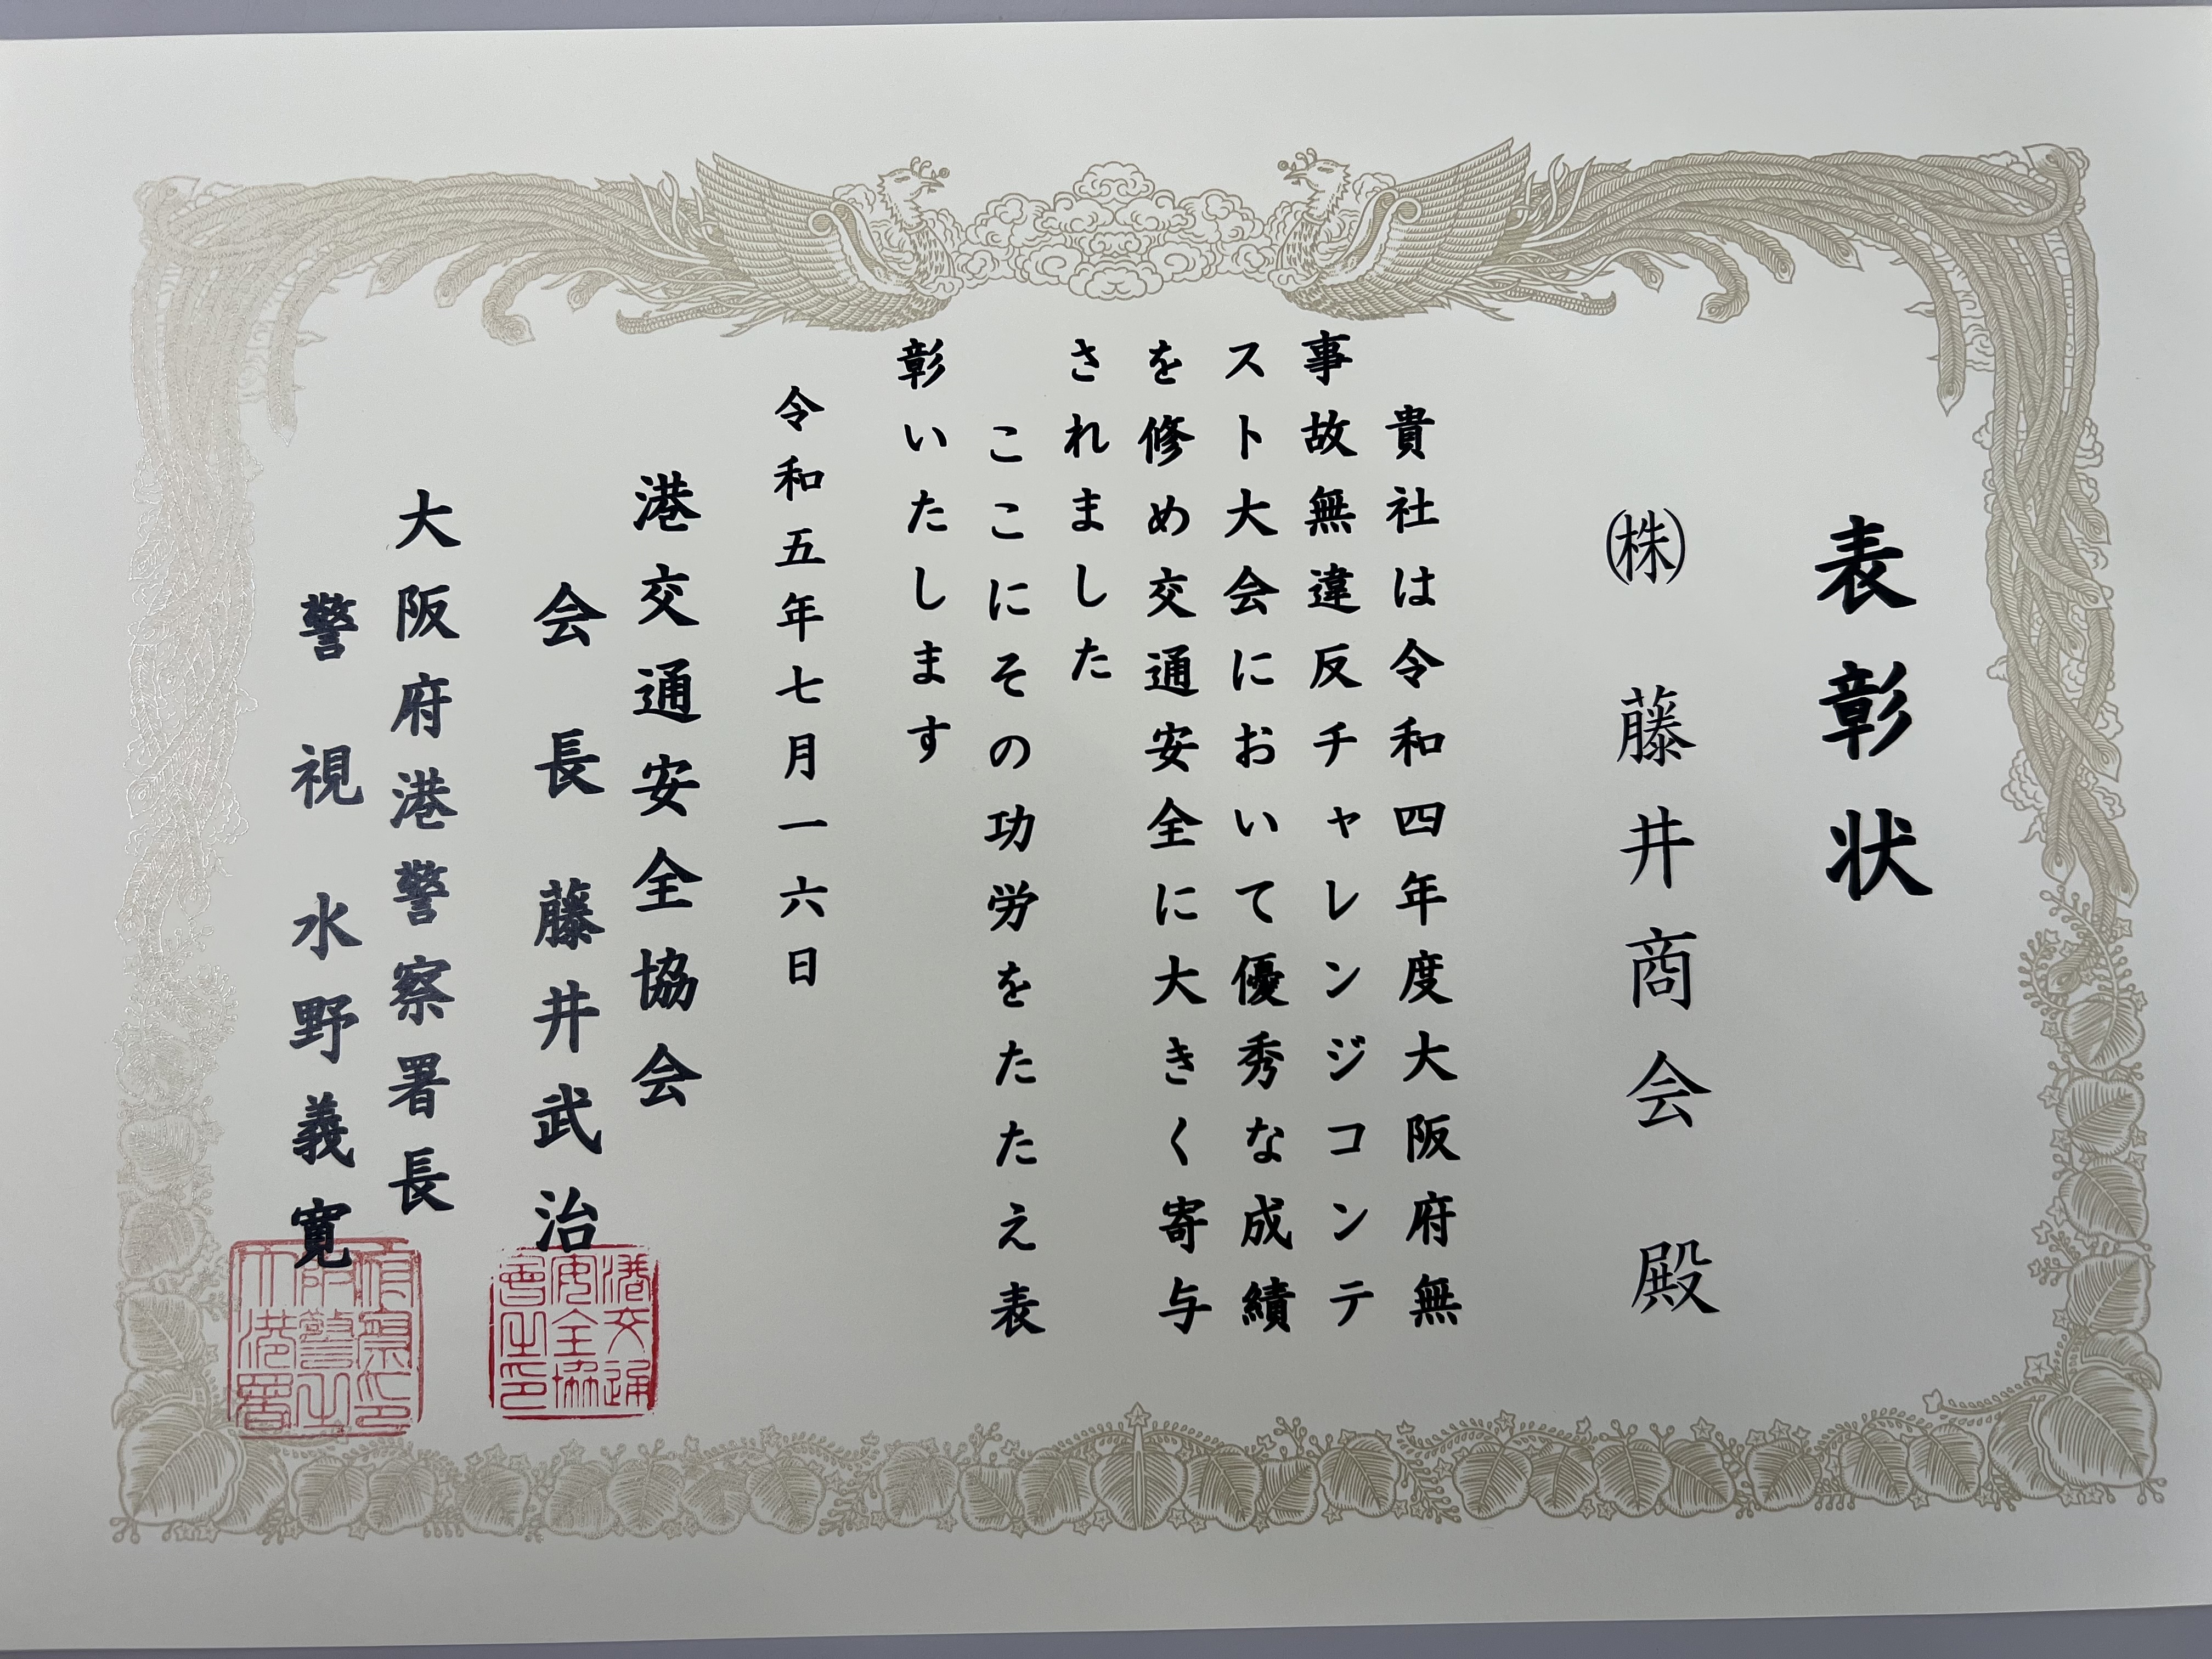 表彰状
㈱ 藤井商会 殿
貴社は令和四年度大阪府無
事故無違反チャレンジコンテ
スト大会において優秀な成績
を修め交通安全に大きく寄与
されました
ここにその功労をたたえ表
彰いたします
令和五年七月一六日
港交通安全協会
会長 藤井武治
大阪府港警察署長
警視 水野義寛
港交通
安全協
會之印
府察印
阪警之
大港署